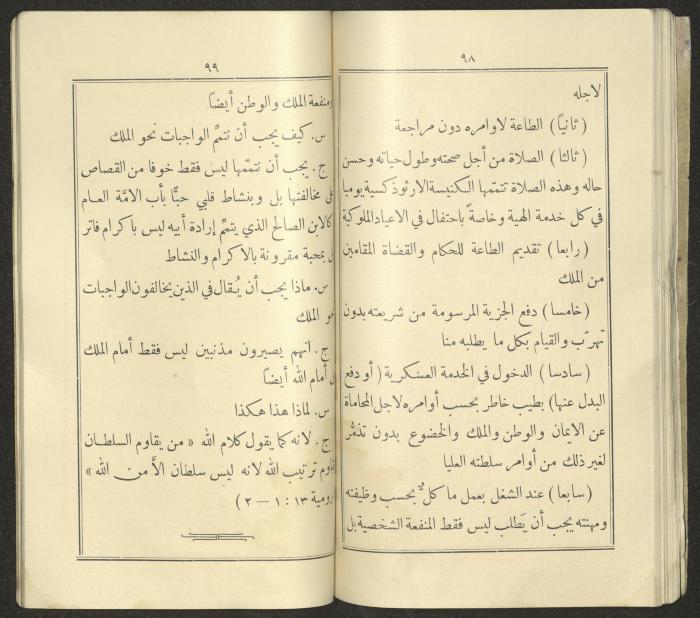 ٩٨
لاجله
( ثانياً ) الطاعة لاوامره دون مراجعة
( ثالثا ) الصلاة من أجل صحته وطول حياته وحسن
حاله وهذه الصلاة تتممها الكنيسة الارثوذكسية يوميا
في كل خدمة الهية وخاصةً باحتفال في الاعياد الملوكية
( رابعا ) تقديم الطاعة للحكام والقضاة المقامين
من الملك
( خامسا ) دفع الجزية المرسومة من شريعته بدون
تهرّب والقيام بكل ما يطلبه منا
( سادسا ) الدخول في الخدمة العسكرية ( أو دفع
البدل عنها ) بطيب خاطر بحسب أوامره لاجل المحاماة
عن الايمان والوطن والملك والخضوع بدون تذمُّر
لغير ذلك من أوامر سلطته العليا
( سابعا ) عند الشغل بعمل ما كلٌّ بحسب وظيفته
ومهنته يجب أن يَطلب ليس فقط المنفعة الشخصية بل
٩٩
ومنفعة الملك والوطن أيضاً
س . كيف يجب أن نتمِّم الواجبات نحو الملك
ج . يجب أن نتمّمها ليس فقط خوفا من القصاص
على مخالفتها بل وبنشاط قلبي حبًّا بأب الامَّة العام
كالابن الصالح الذي يتمِّم إرادة أبيه ليس باكرام فاتر
بل بمحبة مقرونة بالاكرام والنشاط
س . ماذا يجب أن يُقال في الذين يخالفون الواجبات
نحو الملك
ج . انهم يصيرون مذنبين ليس فقط أمام الملك
بل أمام الله أيضاً
س . لماذا هذا هكذا
ج . لانه كما يقول كلام الله « من يقاوم السلطان
يقاوم ترتيب الله لانه ليس سلطان الاَّ من الله »
( رومية ١٣ : ١ — ٢ )